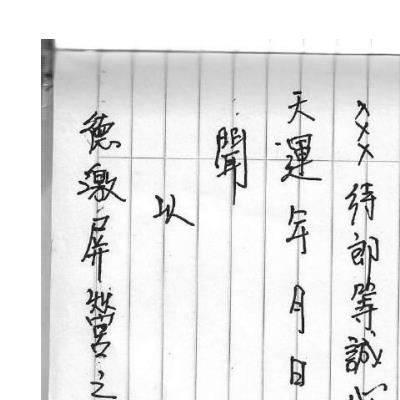 ×××待郎等誠
天運年月日
聞
以
德激屏營之